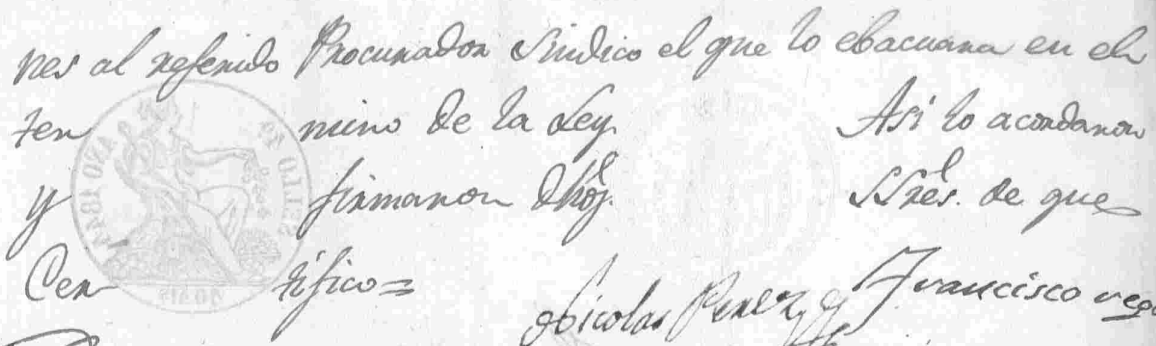 nes al referido Procurador Sindico el que lo ebacuara en el
ter mino de la Ley. Asi lo acordaron
y firmaron dhos. SSres. de que
Cer tifico =
Nicolas Perez Francisco